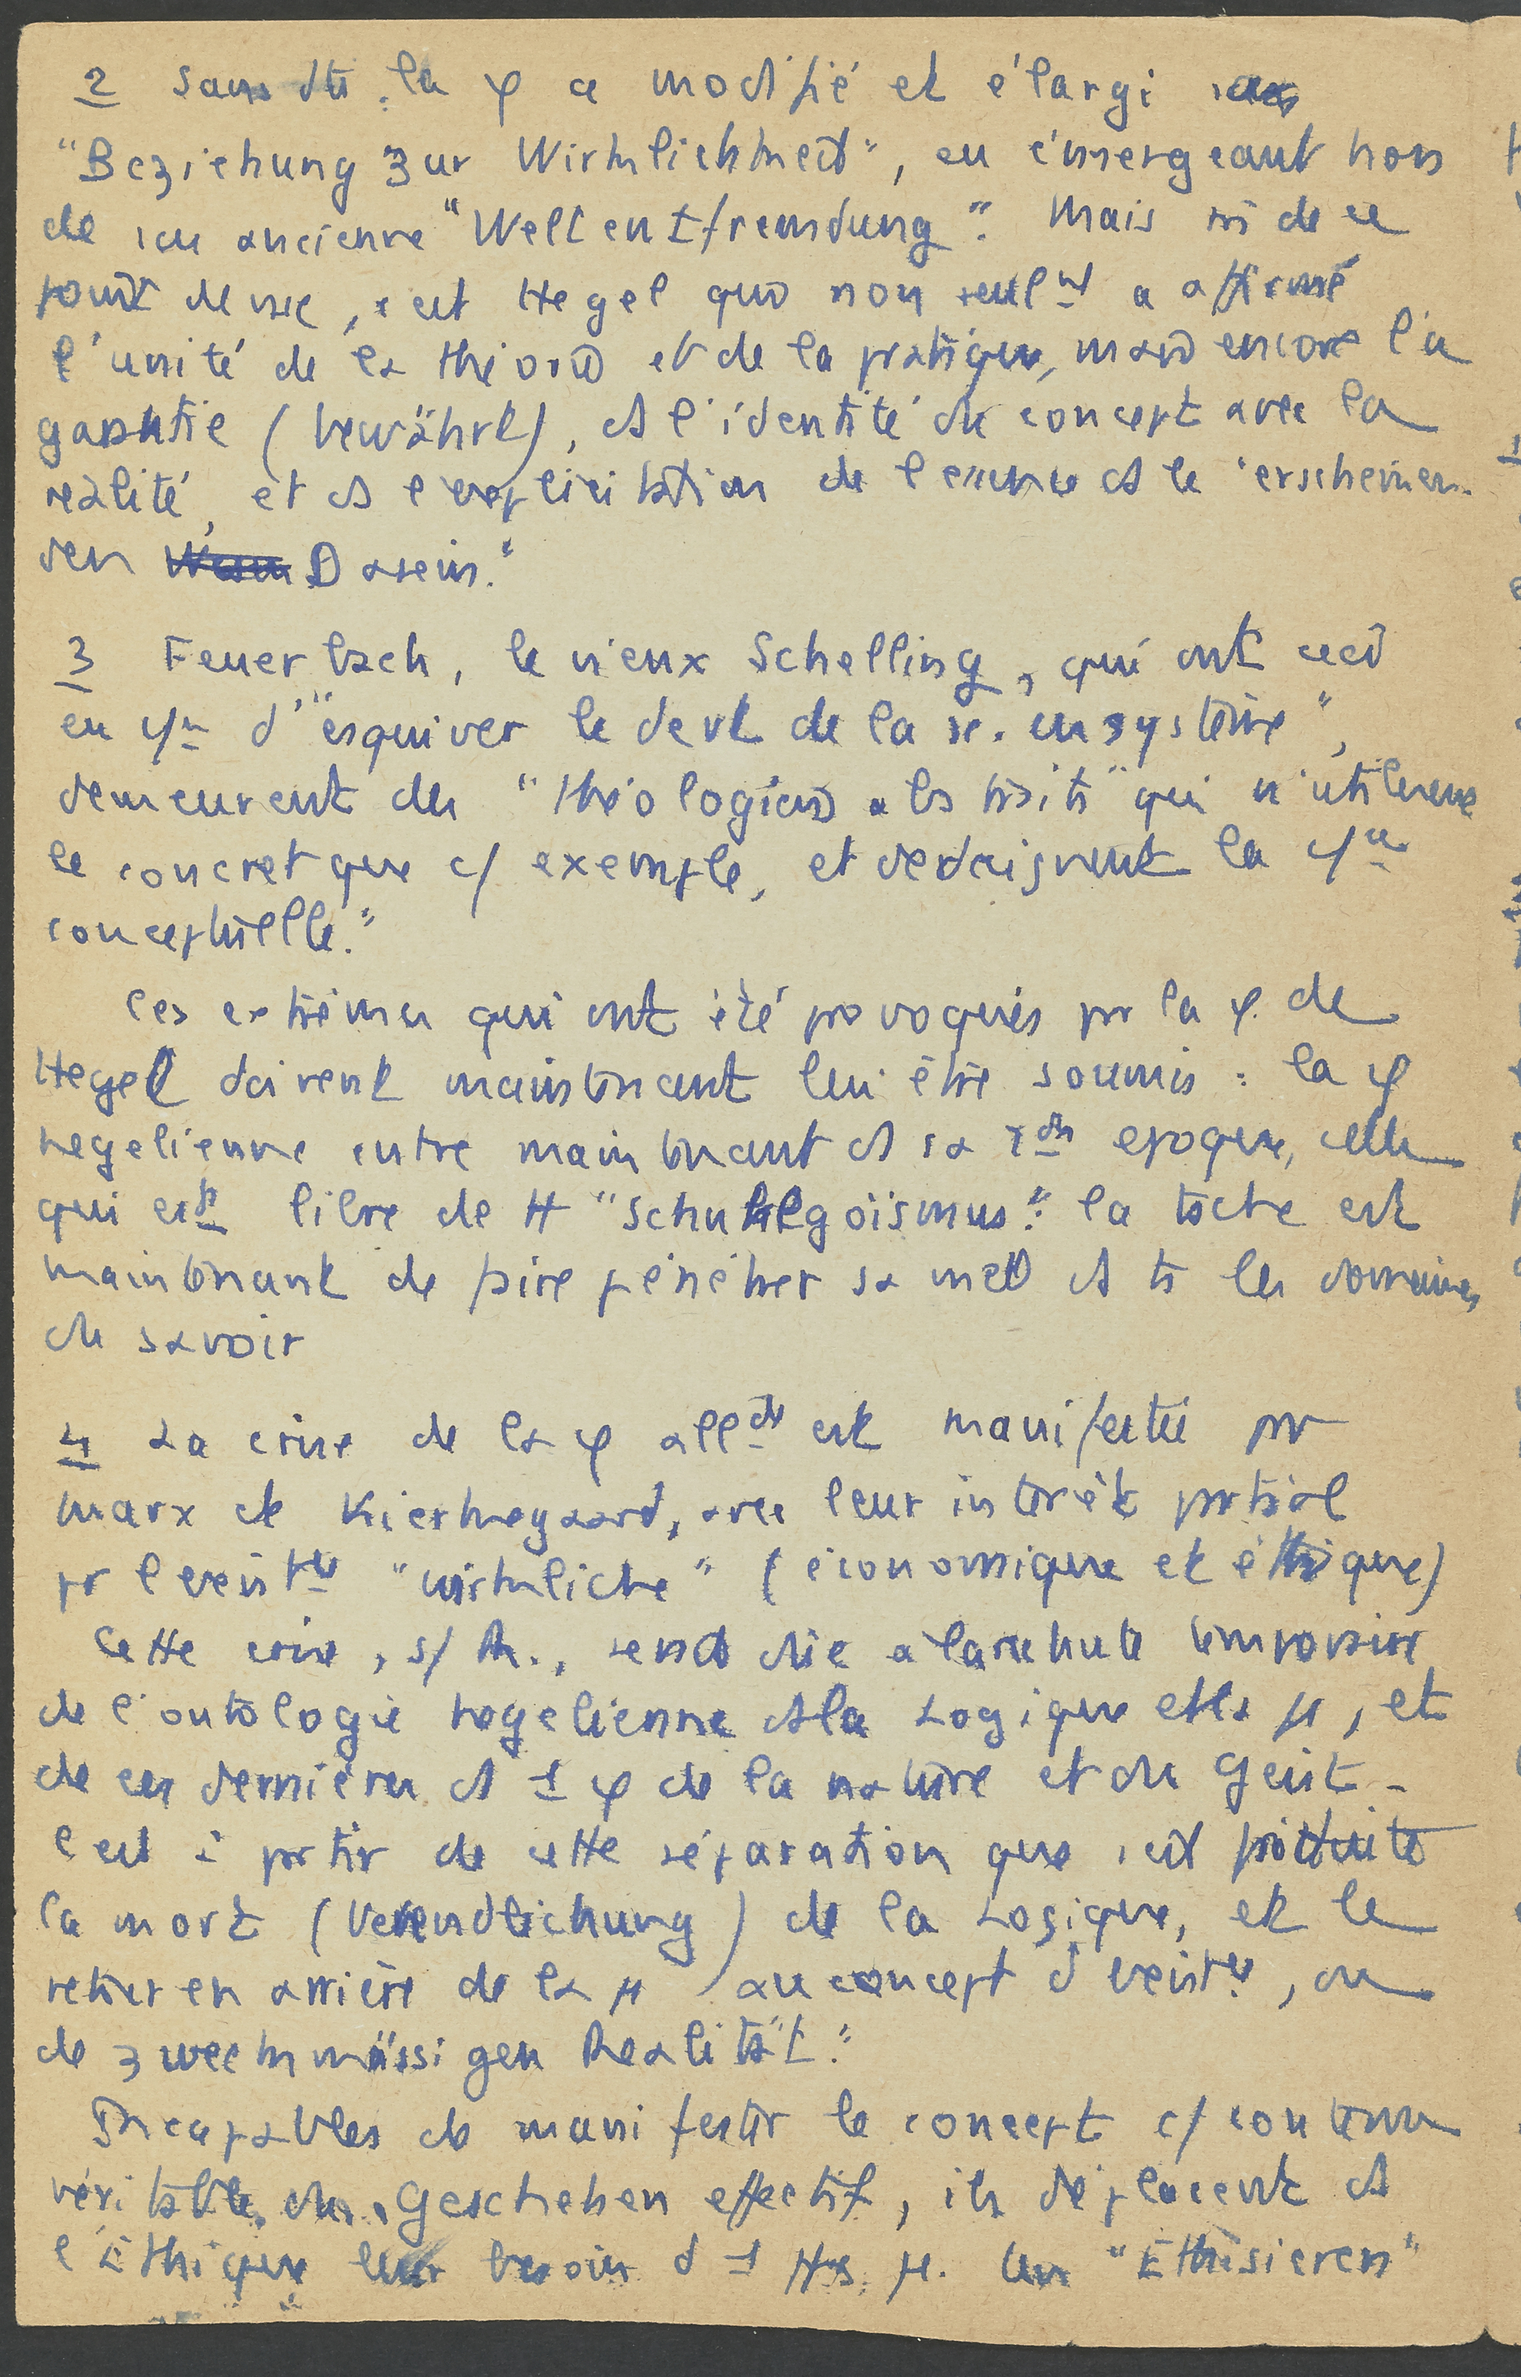 2 Sans dte. la φ a modifié et élargi sa
"Beziehung zur Wirklichkeit", en émergeant hors
de son ancienne "Weltentfremdung". Mais si de ce
point de vue, c'est Hegel qui non seulmt a affirmé
l'unité de la théorie et de la pratique, mais encore l'a
garantie (bewährt), ds l'identité du concept avec la
réalité, et ds l'explicitation de l'essence ds le "erscheinen-
den Dasein."
3 Feuerbach, le vieux Schelling, qui ont
en d'"esquiver le devt de la sc. en système",
demeurent des "théologiens abstraits" qui n'utilisent
le concret que c/ exemple, et dédaignent la
conceptuelle."
Les extrêmes qui ont été provoqués pr la φ. de
Hegel doivent maintenant lui être soumis : la φ
hegelienne entre maintenant ds sa époque, celle
qui est libre de H "Schulegoismus". la tâche est
maintenant de faire pénétrer sa méth ds ts les domaines
du savoir
4 La crise de la φ allde est manifestée pr
Marx et Kierkegaard, avec leur intérêt partial
pr l'existce "wirkliche" (économique et éthique)
Cette crise, s/ R., serait due à la rechute temporaire
de l'ontologie hegelienne ds la Logique et la μ, et
de ces dernières ds 1 φ de la nature et du Geist.
C'est à partir de cette séparation que s'est produite
la mort (Verendlichung) de la Logique, et le
retour en arrière de la μ au concept d'existce, ou
de zweckmässigen Realität."
Incapables de manifester le concept c/ contenu
véritable du Geschehen effectif, ils déplacent ds
l'Éthique leur besoin d'1 μ. Un "Ethisieren"